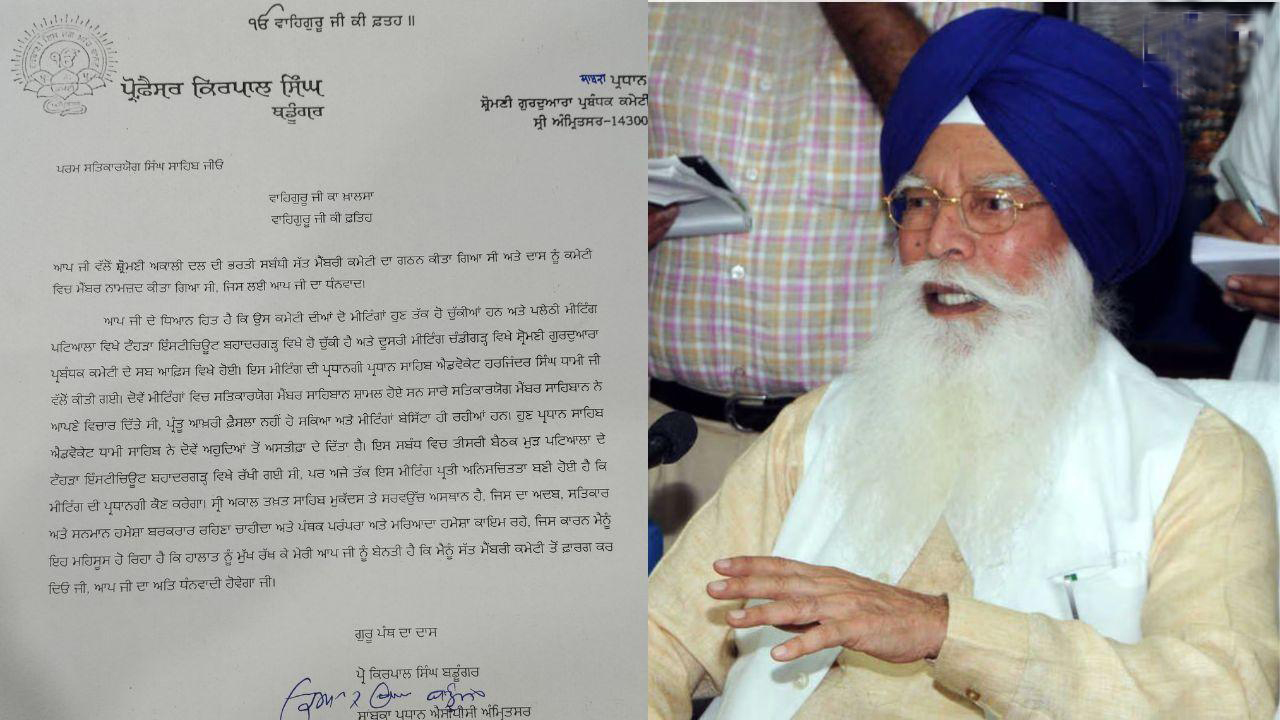 ੴ ਵਾਹਿਗੁਰੂ ਜੀ ਕੀ ਫ਼ਤਹ ॥
ਪ੍ਰੋਫ਼ੈਸਰ ਕਿਰਪਾਲ ਸਿੰਘ
ਬਡੂੰਗਰ
ਸਾਬਕਾ ਪ੍ਰਧਾਨ
ਸ਼੍ਰੋਮਣੀ ਗੁਰਦੁਆਰਾ ਪ੍ਰਬੰਧਕ ਕਮੇਟੀ
ਸ੍ਰੀ ਅੰਮ੍ਰਿਤਸਰ-14300
ਪਰਮ ਸਤਿਕਾਰਯੋਗ ਸਿੰਘ ਸਾਹਿਬ ਜੀਓ
ਵਾਹਿਗੁਰੂ ਜੀ ਕਾ ਖ਼ਾਲਸਾ
ਵਾਹਿਗੁਰੂ ਜੀ ਕੀ ਫ਼ਤਿਹ
ਆਪ ਜੀ ਵੱਲੋਂ ਸ਼੍ਰੋਮਣੀ ਅਕਾਲੀ ਦਲ ਦੀ ਭਰਤੀ ਸਬੰਧੀ ਸੱਤ ਮੈਂਬਰੀ ਕਮੇਟੀ ਦਾ ਗਠਨ ਕੀਤਾ ਗਿਆ ਸੀ ਅਤੇ ਦਾਸ ਨੂੰ ਕਮੇਟੀ
ਵਿਚ ਮੈਂਬਰ ਨਾਮਜ਼ਦ ਕੀਤਾ ਗਿਆ ਸੀ, ਜਿਸ ਲਈ ਆਪ ਜੀ ਦਾ ਧੰਨਵਾਦ।
ਆਪ ਜੀ ਦੇ ਧਿਆਨ ਹਿਤ ਹੈ ਕਿ ਉਸ ਕਮੇਟੀ ਦੀਆਂ ਦੋ ਮੀਟਿੰਗਾਂ ਹੁਣ ਤੱਕ ਹੋ ਚੁੱਕੀਆਂ ਹਨ ਅਤੇ ਪਲੇਠੀ ਮੀਟਿੰਗ
ਪਟਿਆਲਾ ਵਿਖੇ ਟੌਹੜਾ ਇੰਸਟੀਚਿਊਟ ਬਹਾਦਰਗੜ੍ਹ ਵਿਖੇ ਹੋ ਚੁੱਕੀ ਹੈ ਅਤੇ ਦੂਸਰੀ ਮੀਟਿੰਗ ਚੰਡੀਗੜ੍ਹ ਵਿਖੇ ਸ਼੍ਰੋਮਣੀ ਗੁਰਦੁਆਰਾ
ਪ੍ਰਬੰਧਕ ਕਮੇਟੀ ਦੇ ਸਬ ਆਫ਼ਿਸ ਵਿਖੇ ਹੋਈ। ਇਸ ਮੀਟਿੰਗ ਦੀ ਪ੍ਰਧਾਨਗੀ ਪ੍ਰਧਾਨ ਸਾਹਿਬ ਐਡਵੋਕੇਟ ਹਰਜਿੰਦਰ ਸਿੰਘ ਧਾਮੀ ਜੀ
ਵੱਲੋਂ ਕੀਤੀ ਗਈ। ਦੋਵੇਂ ਮੀਟਿੰਗਾਂ ਵਿਚ ਸਤਿਕਾਰਯੋਗ ਮੈਂਬਰ ਸਾਹਿਬਾਨ ਸ਼ਾਮਲ ਹੋਏ ਸਨ ਸਾਰੇ ਸਤਿਕਾਰਯੋਗ ਮੈਂਬਰ ਸਾਹਿਬਾਨ ਨੇ
ਆਪਣੇ ਵਿਚਾਰ ਦਿੱਤੇ ਸੀ, ਪ੍ਰੰਤੂ ਆਖ਼ਰੀ ਫ਼ੈਸਲਾ ਨਹੀਂ ਹੋ ਸਕਿਆ ਅਤੇ ਮੀਟਿੰਗਾਂ ਬੇਸਿੱਟਾ ਹੀ ਰਹੀਆਂ ਹਨ। ਹੁਣ ਪ੍ਰਧਾਨ ਸਾਹਿਬ
ਐਡਵੋਕੇਟ ਧਾਮੀ ਸਾਹਿਬ ਨੇ ਦੋਵੇਂ ਅਹੁਦਿਆਂ ਤੋਂ ਅਸਤੀਫ਼ਾ ਦੇ ਦਿੱਤਾ ਹੈ। ਇਸ ਸਬੰਧ ਵਿਚ ਤੀਸਰੀ ਬੈਠਕ ਮੁੜ ਪਟਿਆਲਾ ਦੇ
ਟੌਹੜਾ ਇੰਸਟੀਚਿਊਟ ਬਹਾਦਰਗੜ੍ਹ ਵਿਖੇ ਰੱਖੀ ਗਈ ਸੀ, ਪਰ ਅਜੇ ਤੱਕ ਇਸ ਮੀਟਿੰਗ ਪ੍ਰਤੀ ਅਨਿਸਚਿਤਤਾ ਬਣੀ ਹੋਈ ਹੈ ਕਿ
ਮੀਟਿੰਗ ਦੀ ਪ੍ਰਧਾਨਗੀ ਕੌਣ ਕਰੇਗਾ। ਸ੍ਰੀ ਅਕਾਲ ਤਖ਼ਤ ਸਾਹਿਬ ਮੁਕੱਦਸ ਤੇ ਸਰਵਉੱਚ ਅਸਥਾਨ ਹੈ, ਜਿਸ ਦਾ ਅਦਬ, ਸਤਿਕਾਰ
ਅਤੇ ਸਨਮਾਨ ਹਮੇਸ਼ਾ ਬਰਕਰਾਰ ਰਹਿਣਾ ਚਾਹੀਦਾ ਅਤੇ ਪੰਥਕ ਪਰੰਪਰਾ ਅਤੇ ਮਰਿਆਦਾ ਹਮੇਸ਼ਾ ਕਾਇਮ ਰਹੇ, ਜਿਸ ਕਾਰਨ ਮੈਨੂੰ
ਇਹ ਮਹਿਸੂਸ ਹੋ ਰਿਹਾ ਹੈ ਕਿ ਹਾਲਾਤ ਨੂੰ ਮੁੱਖ ਰੱਖ ਕੇ ਮੇਰੀ ਆਪ ਜੀ ਨੂੰ ਬੇਨਤੀ ਹੈ ਕਿ ਮੈਨੂੰ ਸੱਤ ਮੈਂਬਰੀ ਕਮੇਟੀ ਤੋਂ ਫ਼ਾਰਗ ਕਰ
ਦਿਓ ਜੀ, ਆਪ ਜੀ ਦਾ ਅਤਿ ਧੰਨਵਾਦੀ ਹੋਵੇਗਾ ਜੀ।
ਗੁਰੂ ਪੰਥ ਦਾ ਦਾਸ
ਪ੍ਰੋ ਕਿਰਪਾਲ ਸਿੰਘ ਬਡੂੰਗਰ
ਸਾਬਕਾ ਪ੍ਰਧਾਨ ਐਸਜੀਪੀਸੀ ਅੰਮ੍ਰਿਤਸਰ